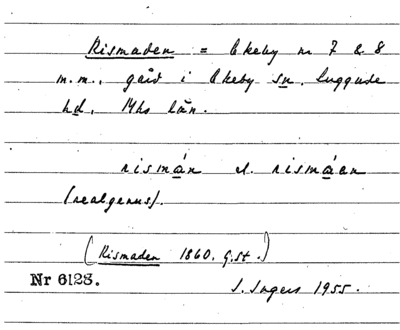 Rismaden = Ekeby nr 7 & 8
m.m., gård i Ekeby sn, Luggude
hd, Mhs län.
rismán el. rismáen
(realgenus).
(Rismaden 1860. G.St.)
Nr 6128.
I. Ingers 1955.